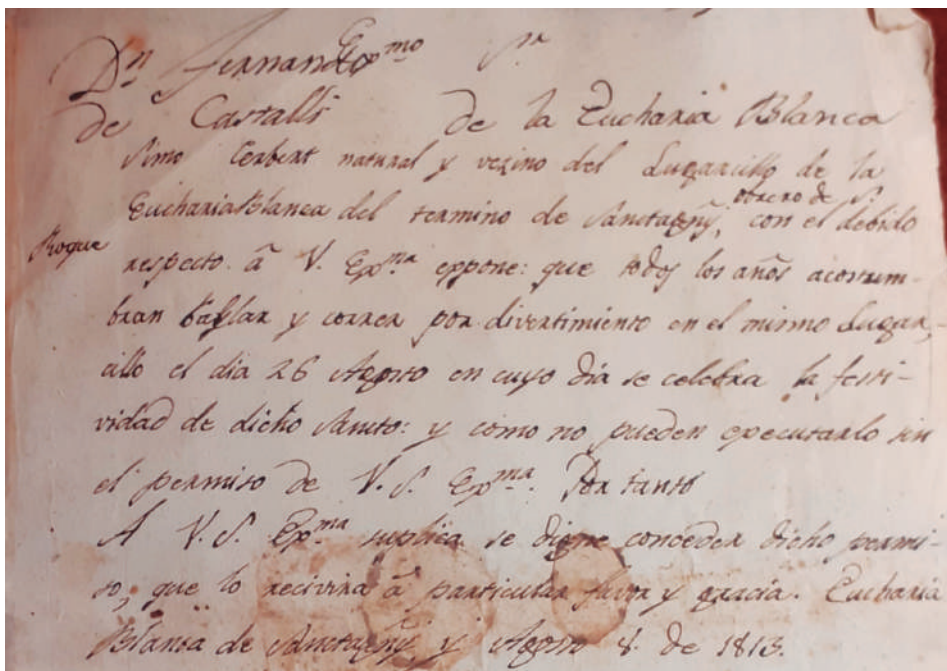 Exmo Sr
Dn Fernando
de Castalls de la Eucharia Blanca
Simo Cerbert natural y vezino del Lugarcillo de la
Eucharia Blanca del termino de Sanctagñy, obrero de S.
Roque con el debido
respecto â V. Exma expone: que todos los años acostum-
bran baylar y correr por divertimiento en el mismo Lugar-
cillo el dia 26 Agosto en cuyo dia se celebra la festi-
vidad de dicho Sancto: y como no pueden executarlo sin
el permiso de V. S. Exma. Por tanto
A V. S. Exma suplica se digne conceder dicho permi-
so, que lo recivira â particular favor y gracia. Eucharia
Blanca de Sanctagñy, y Agosto 8. de 1813.